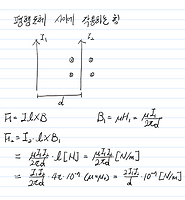 평행도체 사이에 작용하는 힘
I₁ I₂
d
F = I·l×B B₁ = μH₁ = μI₁/2πd
F₂ = I₂·l×B₁
= μI₁I₂/2πd · l [N] = μI₁I₂/2πd [N/m]
= I₁I₂/2πd · 4π·10⁻⁷ (μ=μ₀) = 2I₁I₂/d · 10⁻⁷ [N/m]